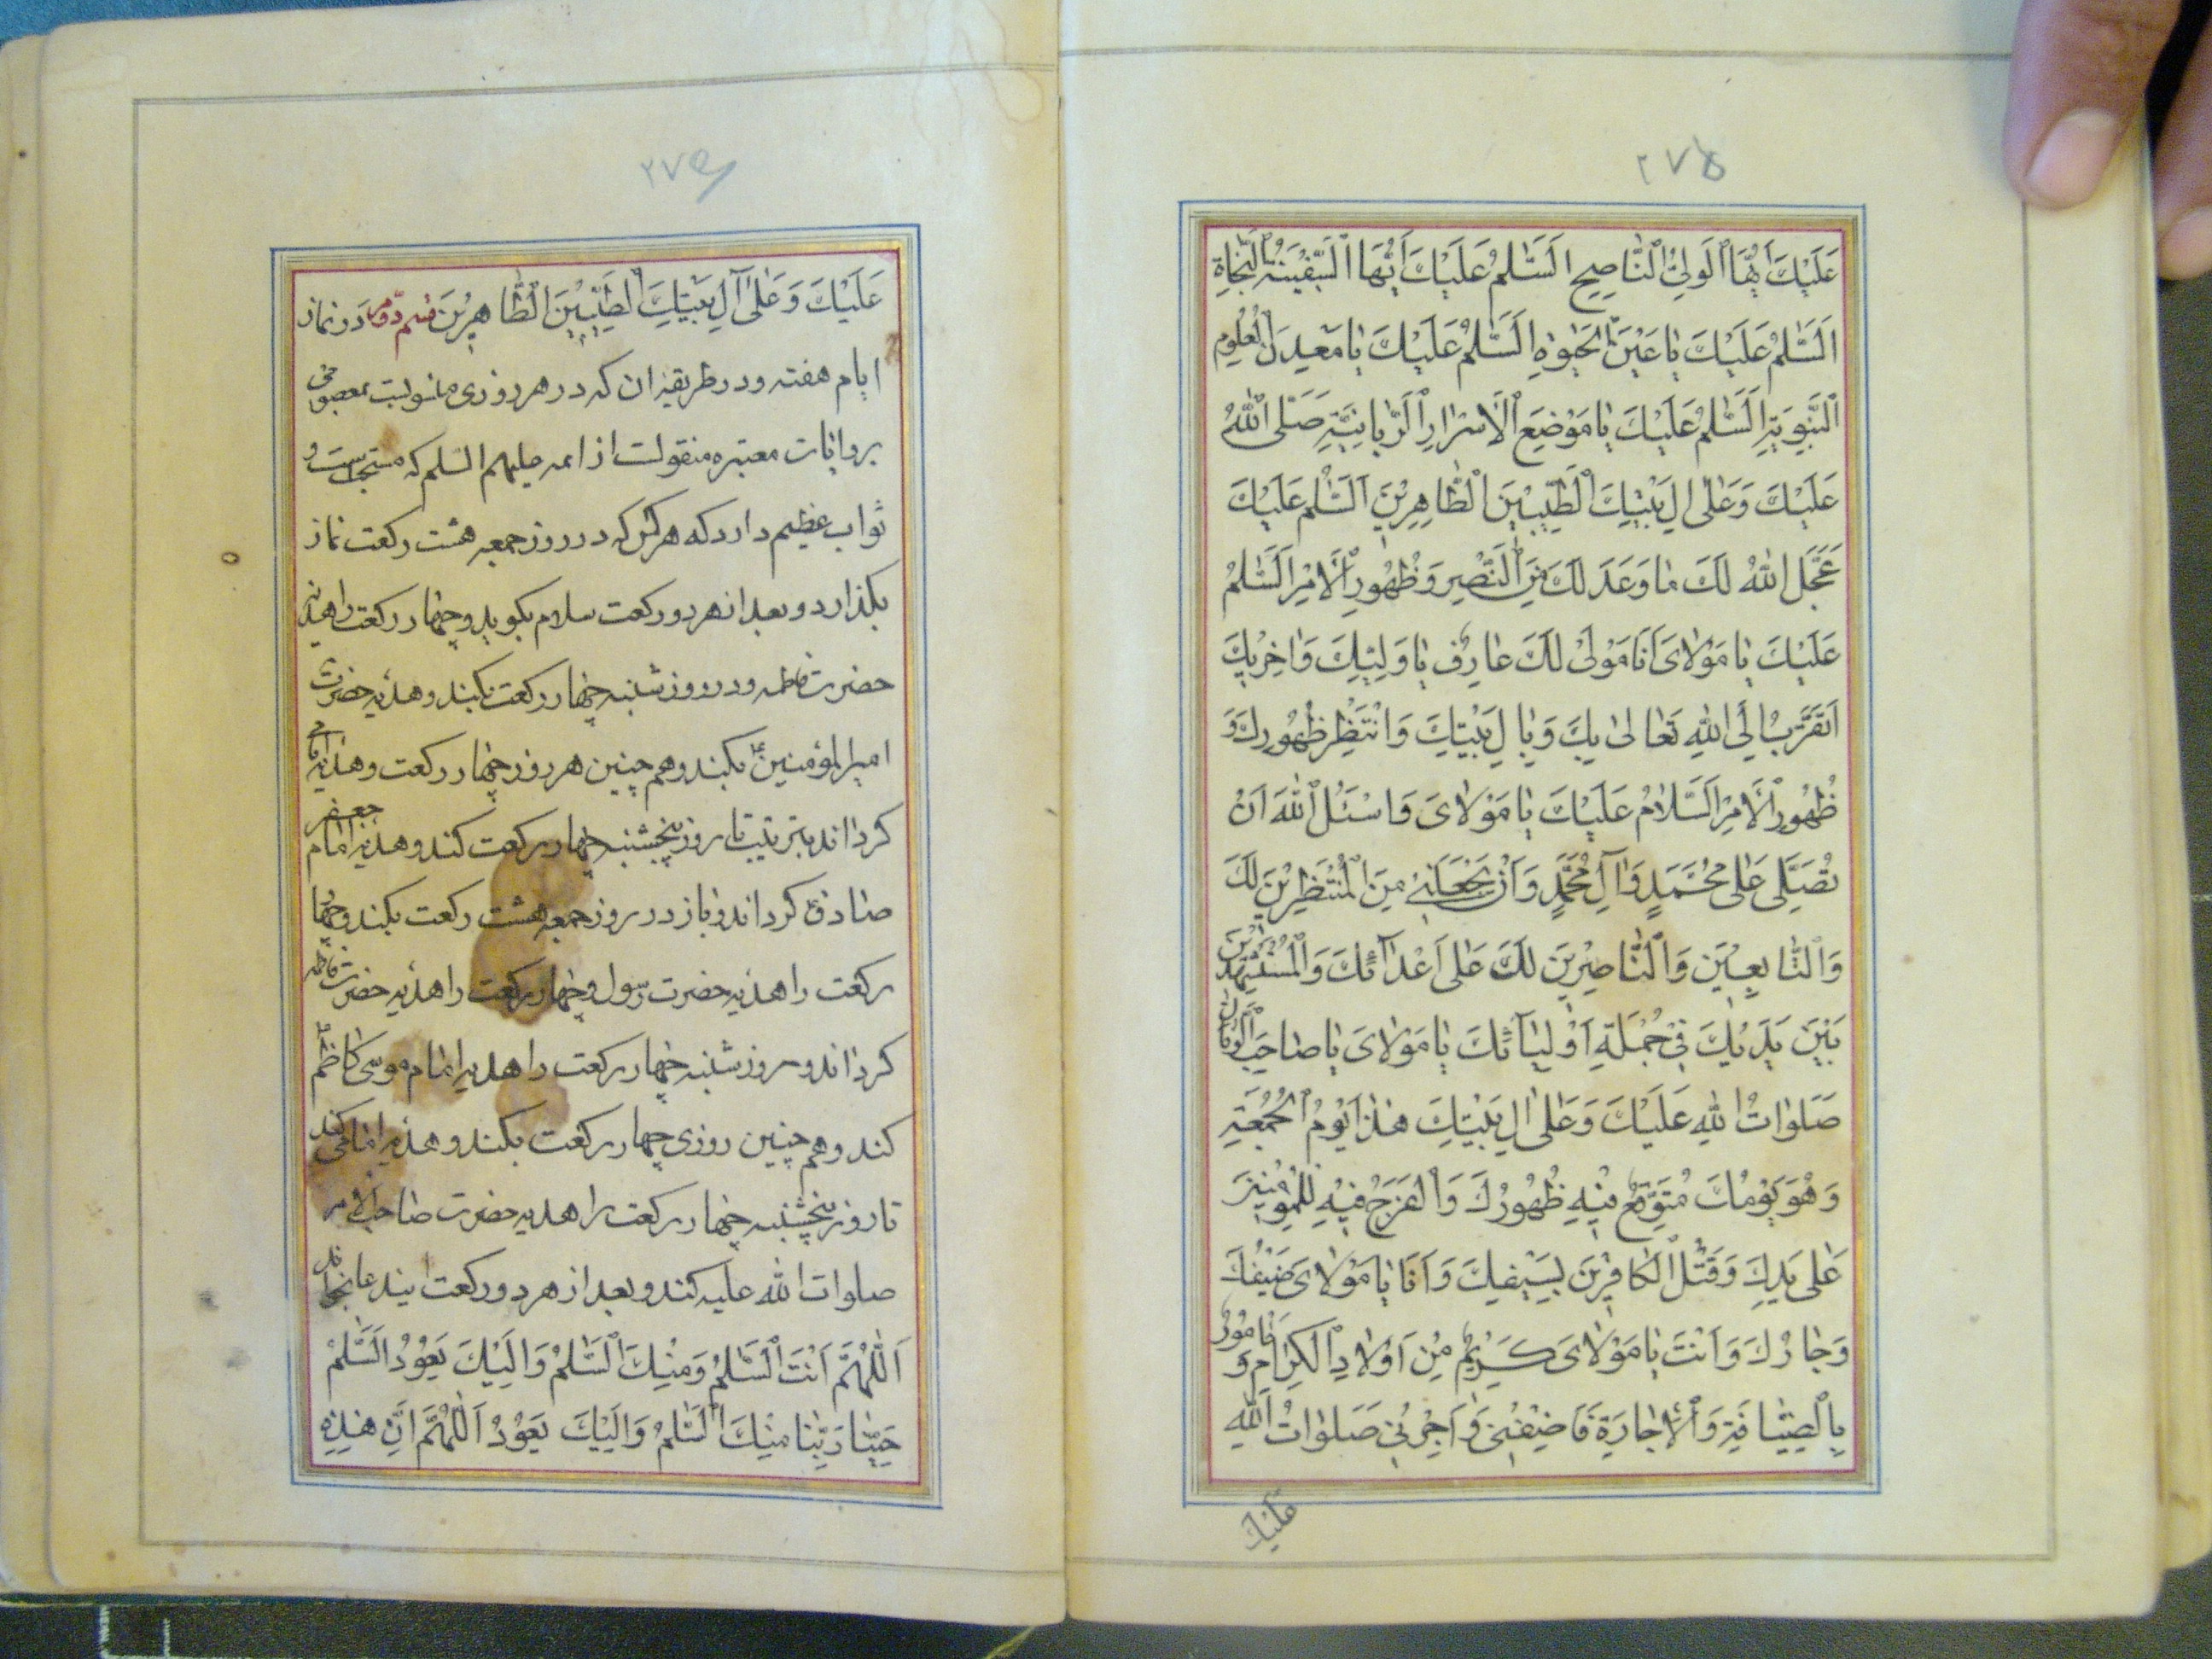 ۲۷۵
عَلَيْكَ اَيُّهَا الْوَلِيُّ النَّاصِحِ اَلسَّلٰمُ عَلَيْكَ اَيُّهَا السَّفِينَةُ النَّجٰاةِ
اَلسَّلٰمُ عَلَيْكَ يٰا عَيْنَ الْحَيٰوةِ اَلسَّلٰمُ عَلَيْكَ يٰا مَعْدِنَ الْعُلُومِ
النَّبَوِيَّةِ اَلسَّلٰمُ عَلَيْكَ يٰا مَوْضِعَ الْاَسْرٰارِ الرَّبّٰانِيَّةِ صَلَّى اللّٰهُ
عَلَيْكَ وَعَلٰى اٰلِ بَيْتِكَ الطَّيِّبِيْنَ الطّٰاهِرِيْنَ اَلسَّلٰمُ عَلَيْكَ
عَجَّلَ اللّٰهُ لَكَ مٰا وَعَدَ لَكَ مِنَ النَّصْرِ وَظُهُورِ الْاَمْرِ اَلسَّلٰمُ
عَلَيْكَ يٰا مَوْلاٰىَ اَنَا مَوْلىً لَكَ عٰارِفٌ بِاَوَّلِيٰكَ وَاٰخِرِيْكَ
اَتَقَرَّبُ اِلَى اللّٰهِ تَعٰالىٰ بِكَ وَبِاٰلِ بَيْتِكَ وَانْتَظِرُ ظُهُورِكَ وَ
ظُهُورِ الْاَمْرِ اَلسَّلاٰمُ عَلَيْكَ يٰا مَوْلاٰىَ وَاسْئَلُ اللّٰهَ اَنْ
تُصَلِّىَ عَلٰى مُحَمَّدٍ وَاٰلِ مُحَمَّدٍ وَاَنْ يَجْعَلَنِى مِنَ الْمُنْتَظِرِيْنَ لَكَ
وَالتّٰابِعِيْنَ وَالنّٰاصِرِيْنَ لَكَ عَلٰى اَعْدٰآئِكَ وَالْمُسْتَشْهَدِيْنَ
بَيْنَ يَدَيْكَ فِىْ جُمْلَةِ اَوْلِيٰآئِكَ يٰا مَوْلاٰىَ يٰا صٰاحِبَ الزَّمٰانِ
صَلَوٰاتُ اللّٰهِ عَلَيْكَ وَعَلٰى اٰلِ بَيْتِكَ هٰذٰا يَوْمُ الْجُمُعَةِ
وَهُوَ يَوْمُكَ مُتَوَقَّعٌ فِيْهِ ظُهُورُكَ وَالْفَرَجُ فِيْهِ لِلْمُؤْمِنِيْنَ
عَلٰى يَدِكَ وَقَتْلُ الْكٰافِرِيْنَ بِسَيْفِكَ وَاَنَا يٰا مَوْلاٰىَ ضَيْفُكَ
وَجٰارُكَ وَاَنْتَ يٰا مَوْلاٰىَ كَرِيْمٌ مِنْ اَوْلاٰدِ الْكِرٰامِ وَ مَأْمُورٌ
بِالضِّيٰافَةِ وَالْاِجٰارَةِ فَاضِفْنِى وَاَجِرْنِى صَلَوٰاتُ اللّٰهِ
عليك
عَلَيْكَ وَعَلٰى اٰلِ بَيْتِكَ الطَّيِّبِيْنَ الطّٰاهِرِيْنَ قسم دوم در نماز
ايام هفته ودر طريقه ان كه در هر روزى منسوبست بمعصومى
بروايات معتبره منقولست از ائمه عليهم السلم كه مستحبست و
ثواب عظيم دارد كه هر كس كه در روز جمعه هشت ركعت نماز
بكذارد و بعد از هر دو ركعت سلام بكويد و چهار ركعت را هديه
حضرت فاطمه ودر روز شنبه چهار ركعت بكند و هديه حضرت
امير المؤمنين بكند وهم چنين هر روز چهار ركعت وهديه امامى
كرداند بترتيب تا روز پنجشنبه چهار ركعت كند وهديه امام جعفر
صادق كرداند و باز در روز جمعه هشت ركعت بكند و چهار
ركعت را هديه حضرت رسول و چهار ركعت را هديه حضرت فاطمه
كرداند و روز شنبه چهار ركعت را هديه امام موسى كاظم
كند وهم چنين روزى چهار ركعت بكند و هديه امامى كند
تا روز پنجشنبه چهار ركعت را هديه حضرت صاحب الامر
صلوات الله عليه كند و بعد از هر دو ركعت ايندعا بخواند
اَللّٰهُمَّ اَنْتَ السَّلٰمُ وَمِنْكَ السَّلٰمُ وَاِلَيْكَ يَعُوْدُ السَّلٰمُ
حَيِّنٰا رَبَّنٰا مِنْكَ السَّلٰمُ وَاِلَيْكَ يَعُوْدُ اَللّٰهُمَّ اِنَّ هٰذِهِ